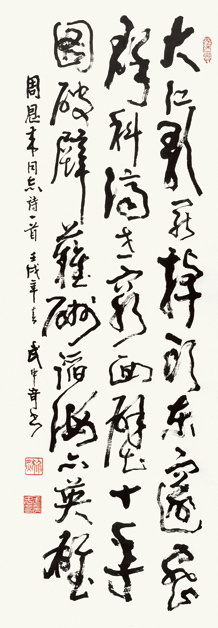 大江歌罷掉頭东邃密
群科濟世窮面壁十年
圖破壁難酬蹈海亦英雄
周恩来同志詩一首 壬戌年 武中奇书